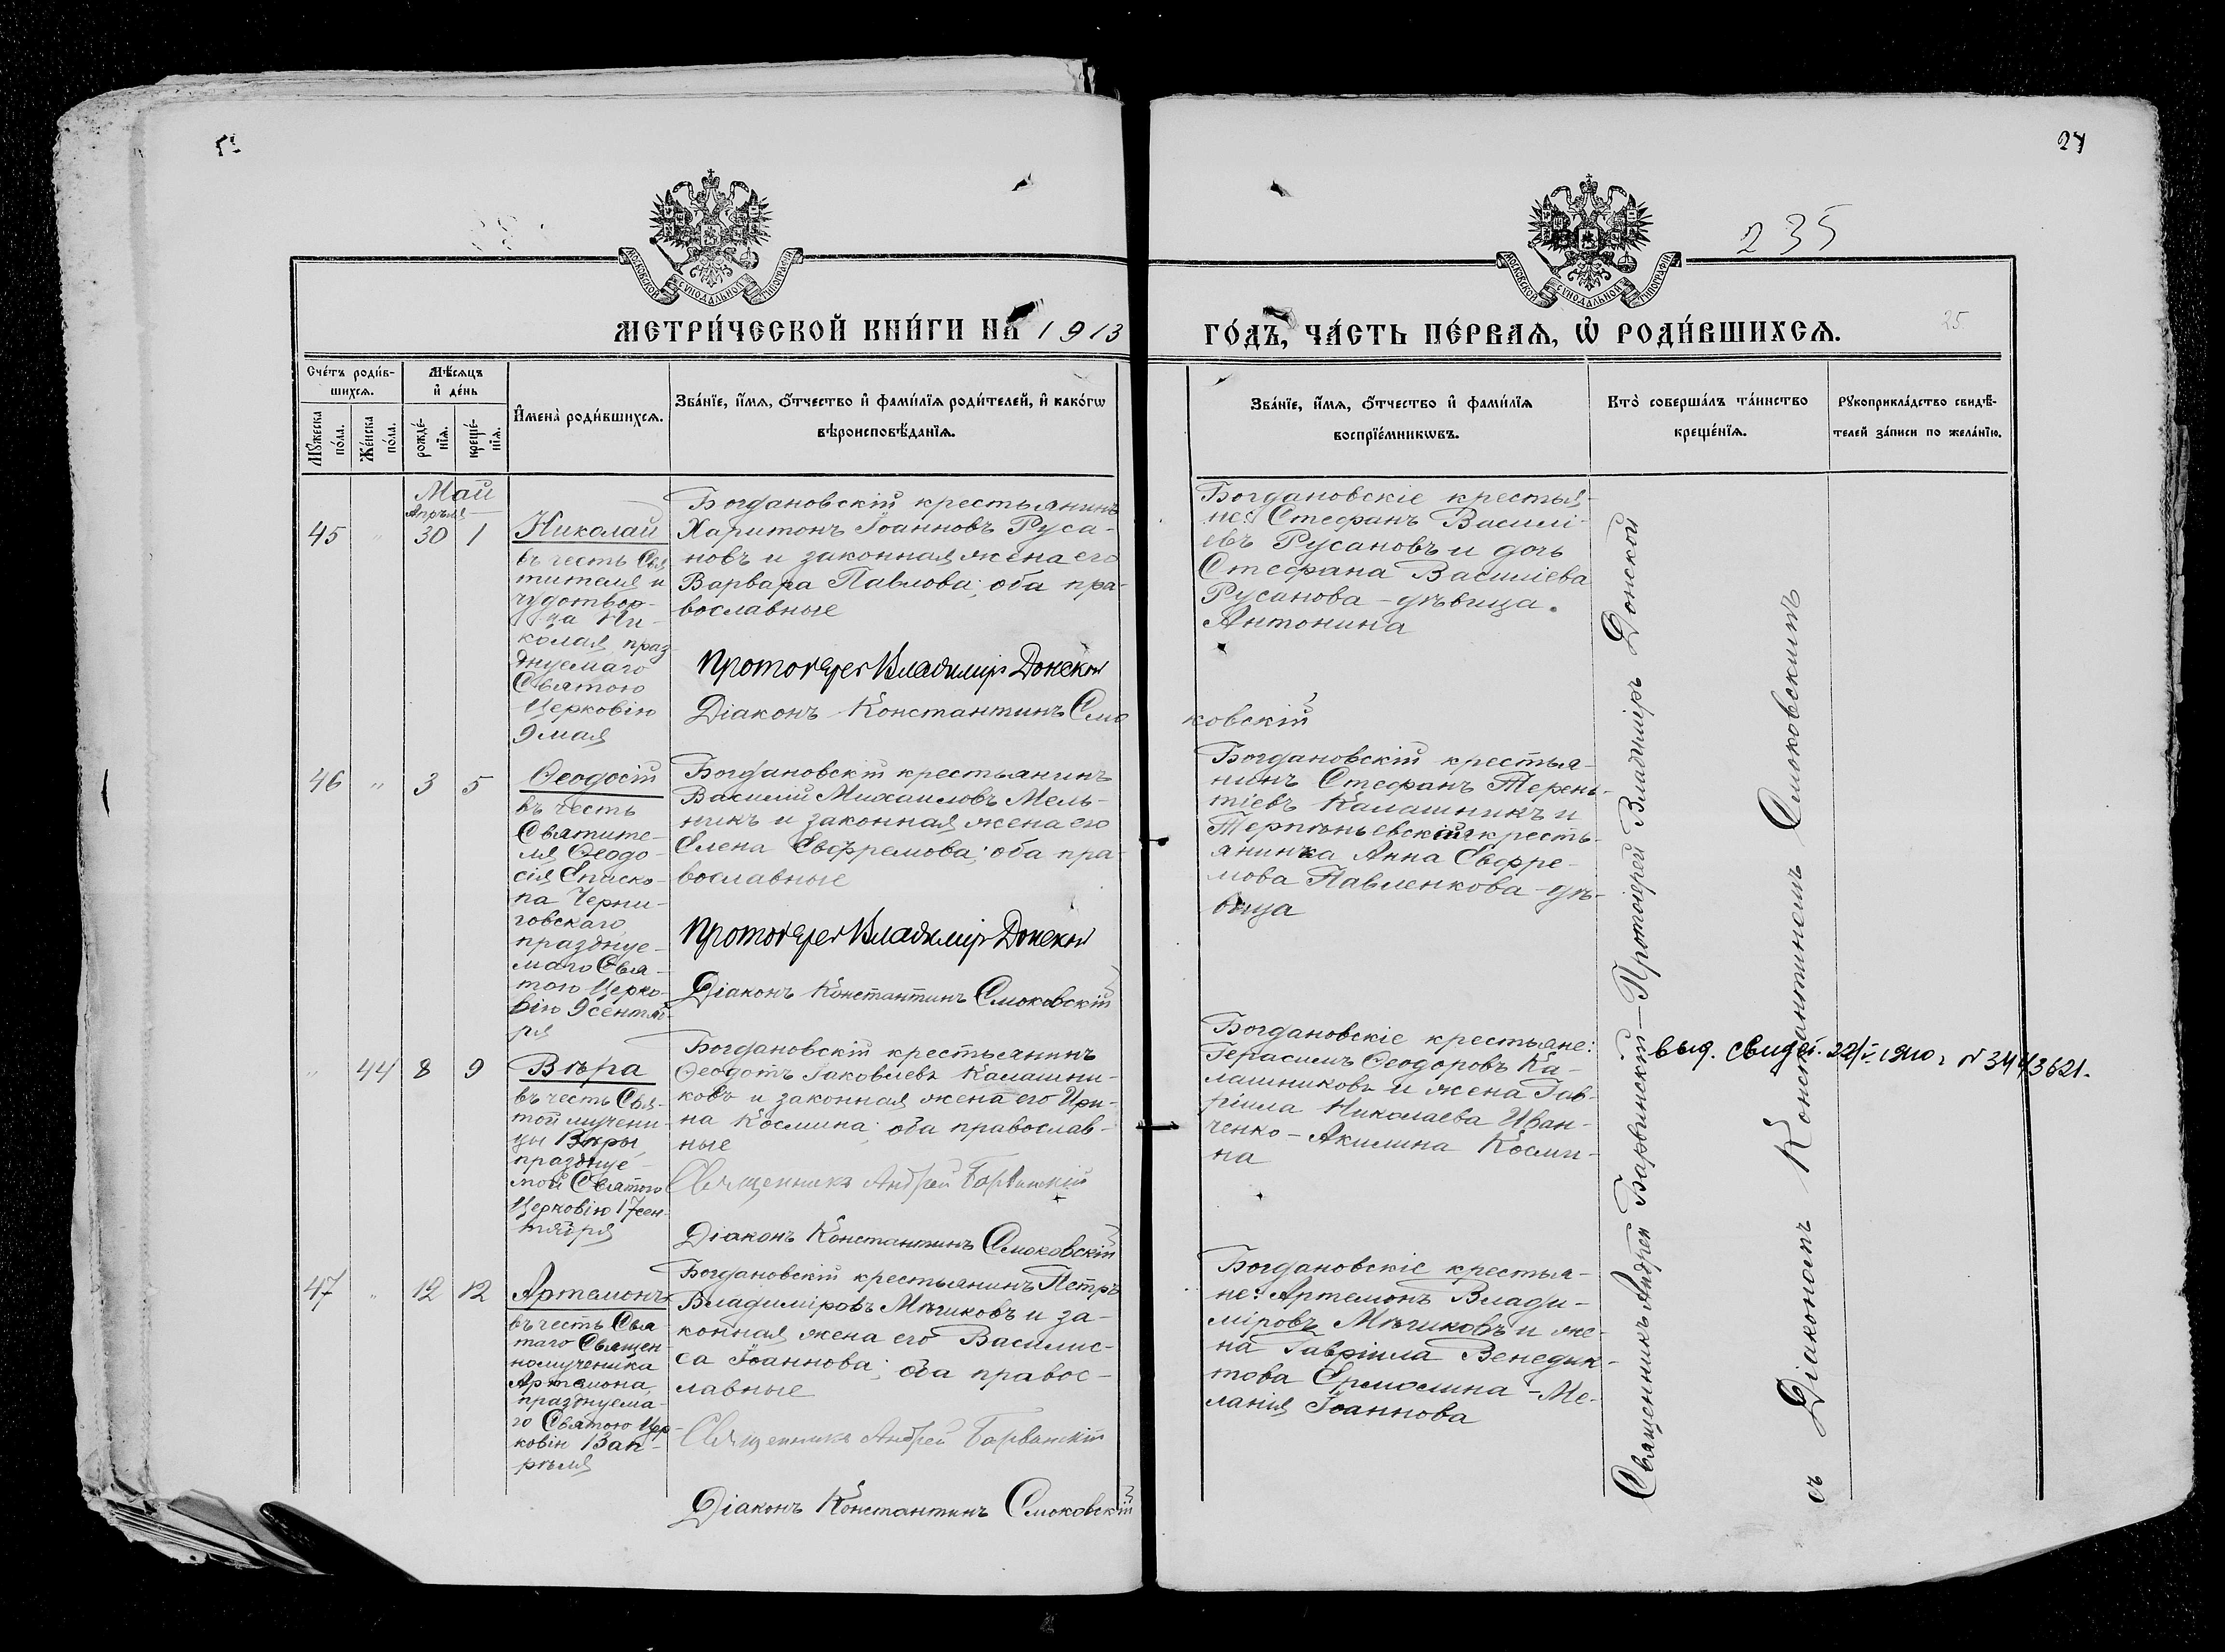 24
235
МОСКОВСКОЙ СУНОДАЛЬНОЙ ТИПОГРАФІИ
МОСКОВСКОЙ СУНОДАЛЬНОЙ ТИПОГРАФІИ
МЕТРИ́ЧЕСКОЙ КНИ́ГИ НА 1913
ГО́ДЪ, ЧА́СТЬ ПЕ́РВАЯ, Ѡ҆ РОДИ́ВШИХСѦ.
25
Сче́тъ роди́в-
шихсѧ.
Мѣ́сѧцъ
и҆ де́нь
Мꙋ́жеска
по́ла.
Же́нска
по́ла.
рожде́-
нїѧ.
креще́-
нїѧ.
И҆мена̀ роди́вшихсѧ.
Зва́нїе, и҆́мѧ, ѻ҆́тчество и҆ фами́лїѧ роди́телей, и҆ како́гѡ
вѣроисповѣ́данїѧ.
Зва́нїе, и҆́мѧ, ѻ҆́тчество и҆ фами́лїѧ
воспрїе́мникѡвъ.
Кто̀ соверша́лъ та́инство
креще́нїѧ.
Рꙋкоприкла́дство свидѣ́-
телей за́писи по жела́нїю.
Май
Апрѣля
45 " 30 1
Николай
въ честь Свя
тителя и
чудотвор-
ца Ни-
колая, праз-
днуемаго
Святою
Церковію
9 мая
Богдановскій крестьянинъ
Харитонъ Іоанновъ Руса-
новъ и законная жена его
Варвара Павлова; оба пра-
вославные
Протоіерей Владиміръ Донской
Діаконъ Константинъ Смо
ковскій
Богдановскіе крестья-
не: Стефанъ Василі-
евъ Русановъ и дочь
Стефана Василіева
Русанова - дѣвица
Антонина
46 " 3 5
Ѳеодосій
въ честь
Святите-
ля Ѳеодо-
сія Еписко-
па Черни-
говскаго,
празднуе-
маго Свя-
тою Церко-
вію 9 сентяб-
ря
Богдановскій крестьянинъ
Василій Михаиловъ Мель-
никъ и законная жена его
Елена Евфремова; оба пра-
вославные
Протоіерей Владиміръ Донской
Діаконъ Константинъ Смоковскій
Богдановскій крестья-
нинъ Стефанъ Терень-
тіевъ Калашникъ и
кресть-
янинка Анна Евфре-
мова Павленкова - дѣ-
вица
" 44 8 9
Вѣра
въ честь Свя-
той мучени-
цы Вѣры,
празднуе-
мой Святою
Церковію 17 сен-
тября
Богдановскій крестьянинъ
Ѳеодотъ Іаковлевъ Калашни-
ковъ и законная жена его Ири-
на Космина; оба православ-
ные
Священникъ Андрей Барвинскій
Діаконъ Константинъ Смоковскій
Богдановскіе крестьяне:
Герасимъ Ѳеодоровъ Ка-
лашниковъ и жена Гав-
ріила Николаева Иван-
ченко - Акилина Косми-
на
выд. свидет.
47 " 12 12
Артемонъ
въ честь Свя
таго Священ
номученика
Артемона,
празднуема-
го Святою Цер-
ковію 13 ап-
рѣля
Богдановскій крестьянинъ Петръ
Владиміровъ Мѣчиковъ и за-
конная жена его Василис-
са Іоаннова; оба правос-
лавные
Священникъ Андрей Барвинскій
Діаконъ Константинъ Смоковскій
Богдановскіе крестья-
не: Артемонъ Влади-
міровъ Мѣчиковъ и же-
на Гавріила Венедик-
това Ермолина - Ме-
ланія Іоаннова
Священникъ Андрей Барвинскій - Протоіерей Владиміръ Донской
съ Діакономъ Константиномъ Смоковскимъ